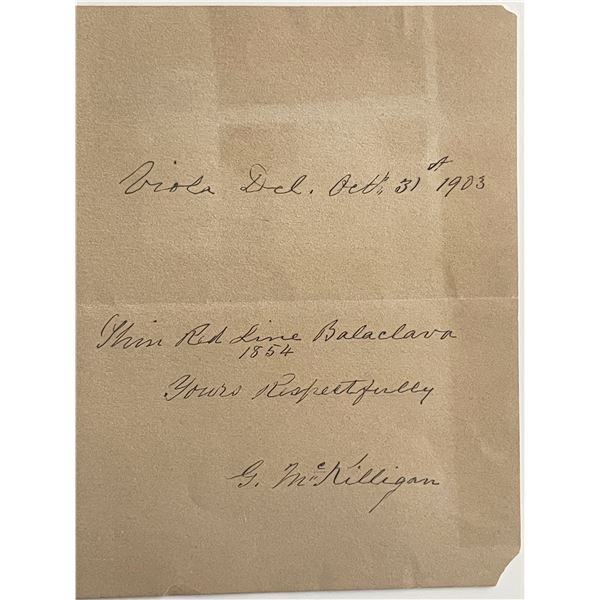 Viola Del. Octb. 31st 1903
Thin Red Line Balaclava
1854
Yours Respectfully
G. McKilligan